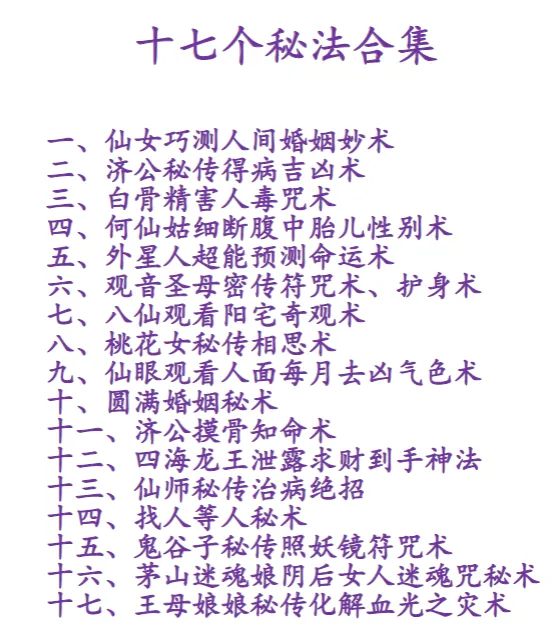 十七个秘法合集
一、仙女巧测人间婚姻妙术
二、济公秘传得病吉凶术
三、白骨精害人毒咒术
四、何仙姑细断腹中胎儿性别术
五、外星人超能预测命运术
六、观音圣母密传符咒术、护身术
七、八仙观看阳宅奇观术
八、桃花女秘传相思术
九、仙眼观看人面每月去凶气色术
十、圆满婚姻秘术
十一、济公摸骨知命术
十二、四海龙王泄露求财到手神法
十三、仙师秘传治病绝招
十四、找人等人秘术
十五、鬼谷子秘传照妖镜符咒术
十六、茅山迷魂娘阴后女人迷魂咒秘术
十七、王母娘娘秘传化解血光之灾术